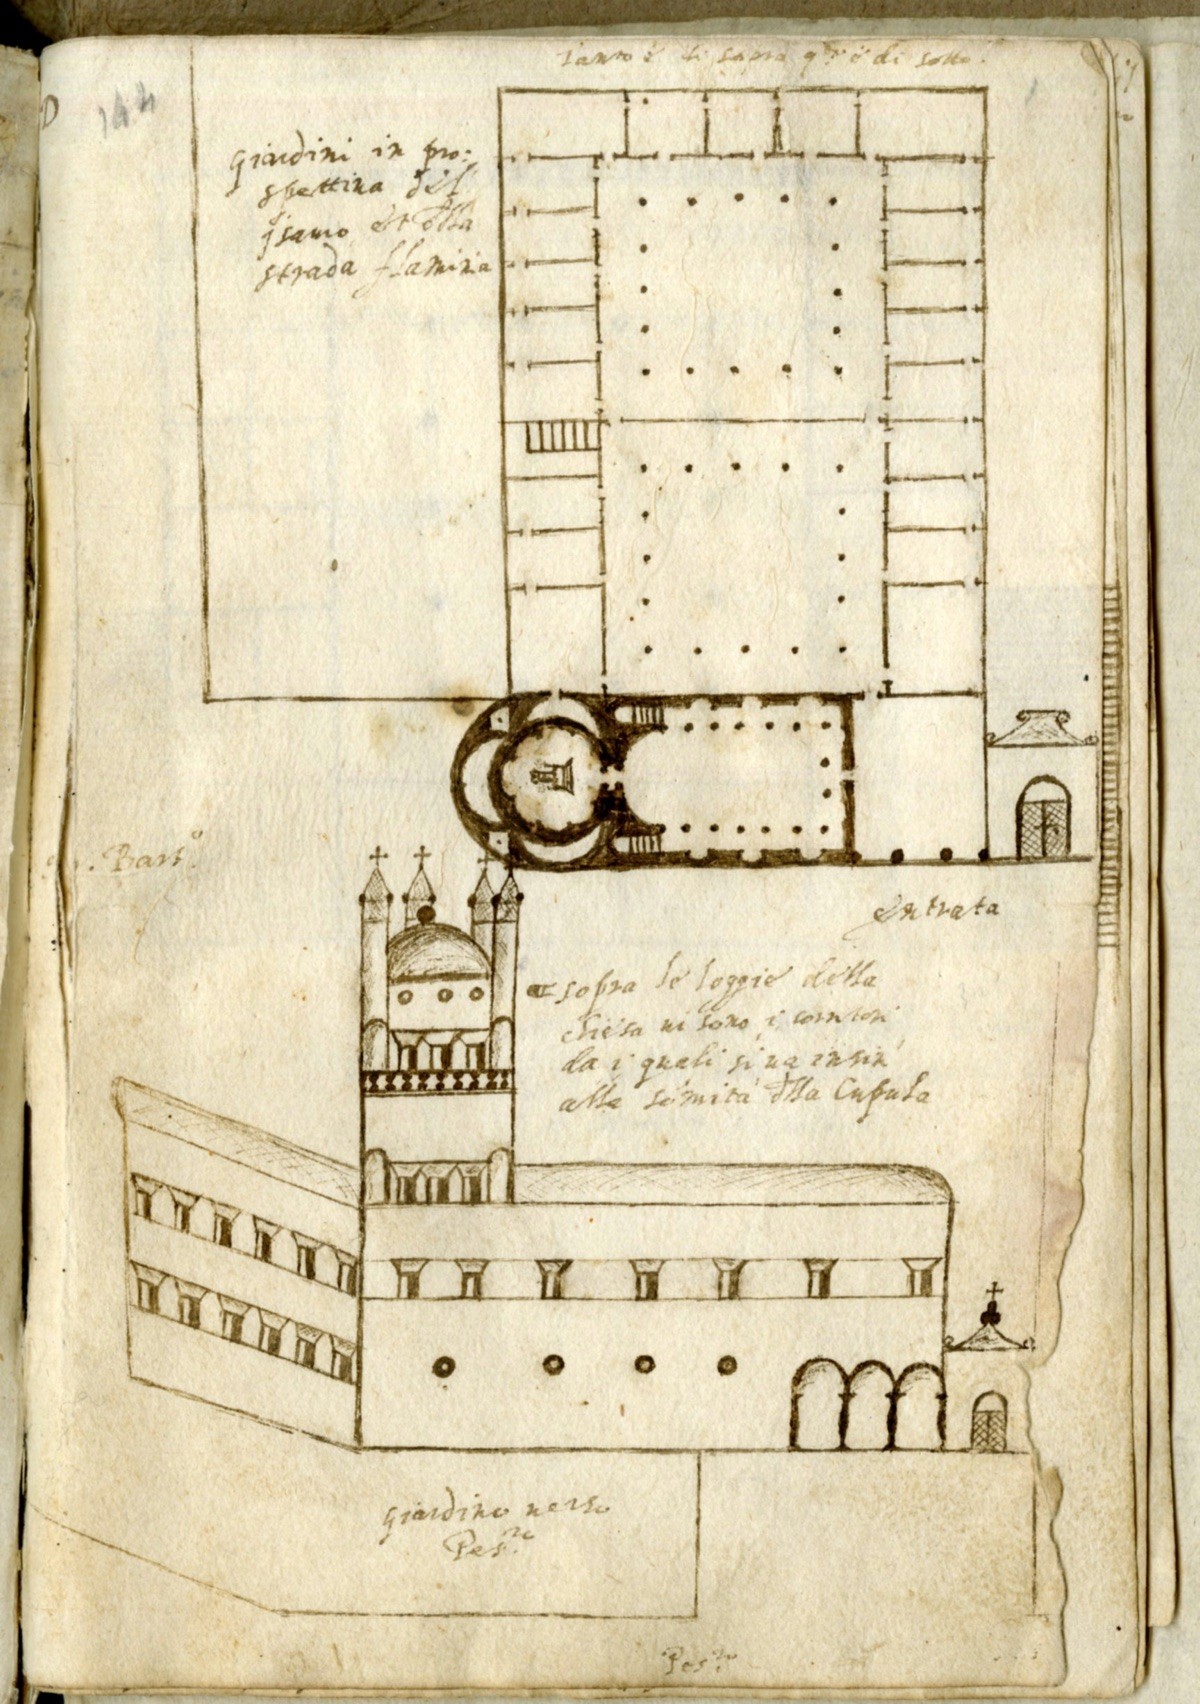 Tanto è di sopra qto è di sotto.
D
144
Giardini in pro:
spettiua del
et della
strada flaminia
Bart.o
Entrata
sopra le loggie della
chiesa ui sono i corritori
da i quali si ua insin
alla somita della Cupula
Giardino uerso
Pes.ro
Pes.ro